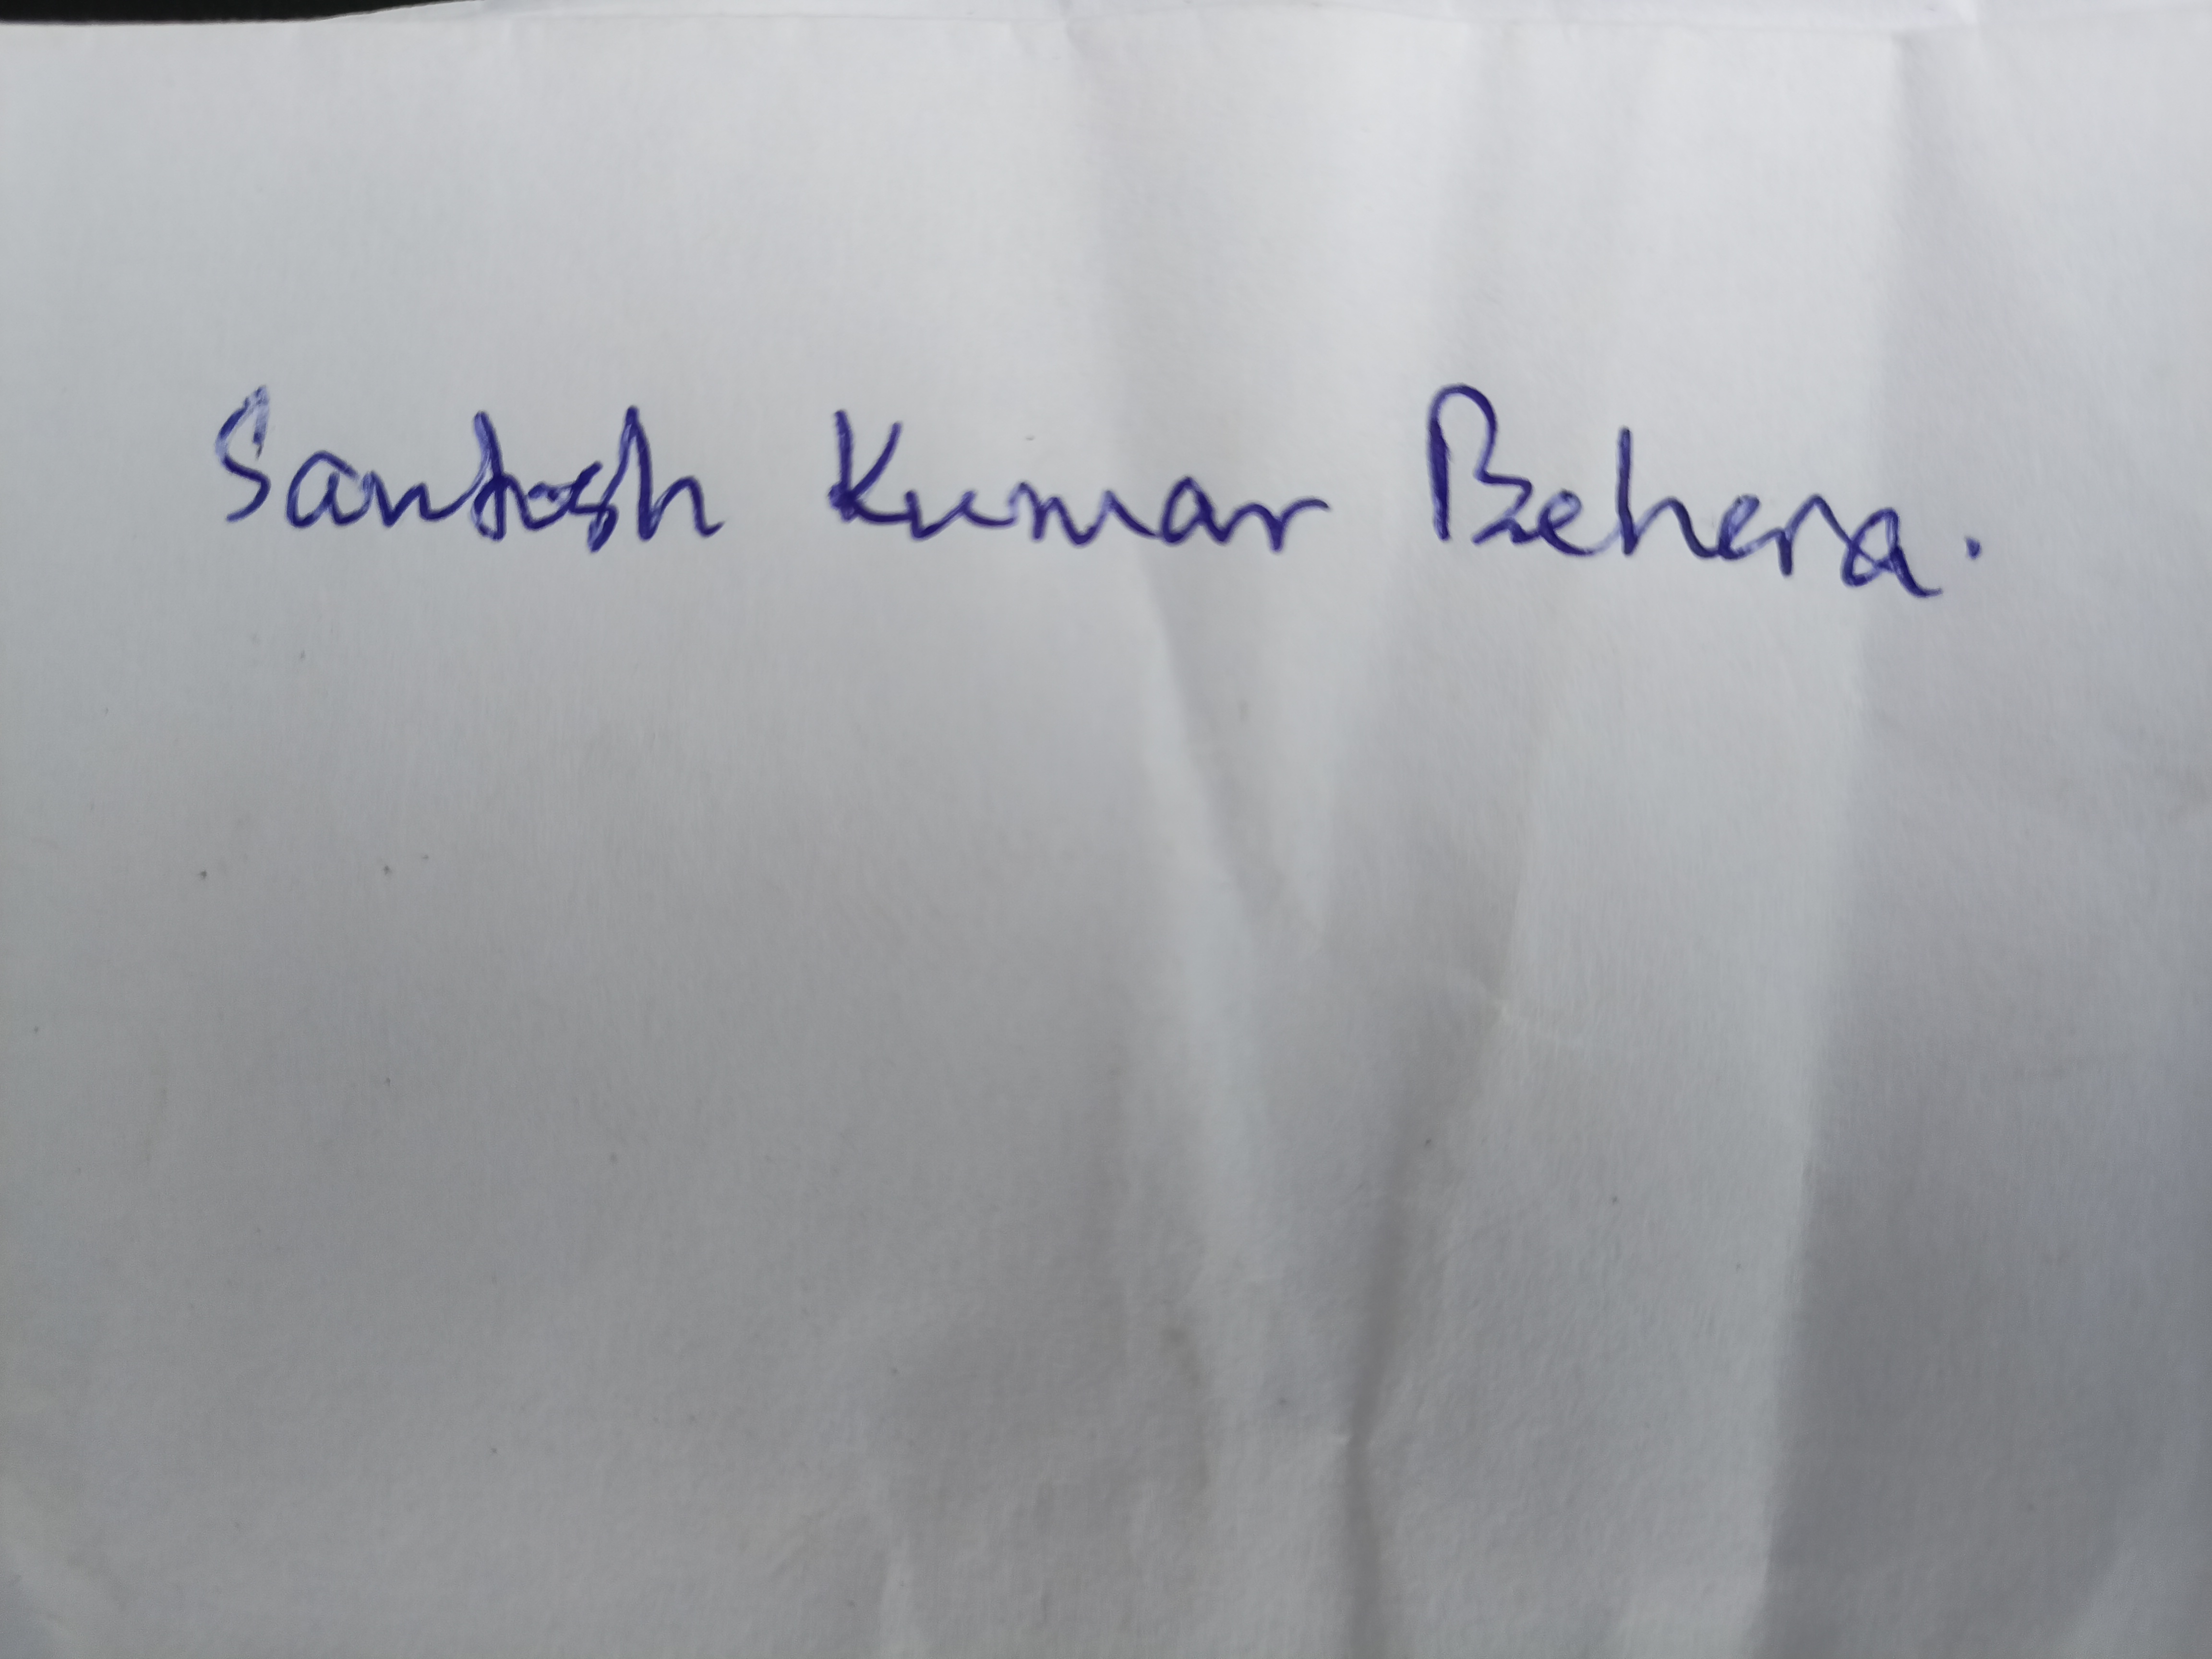 Santosh Kumar Behera.